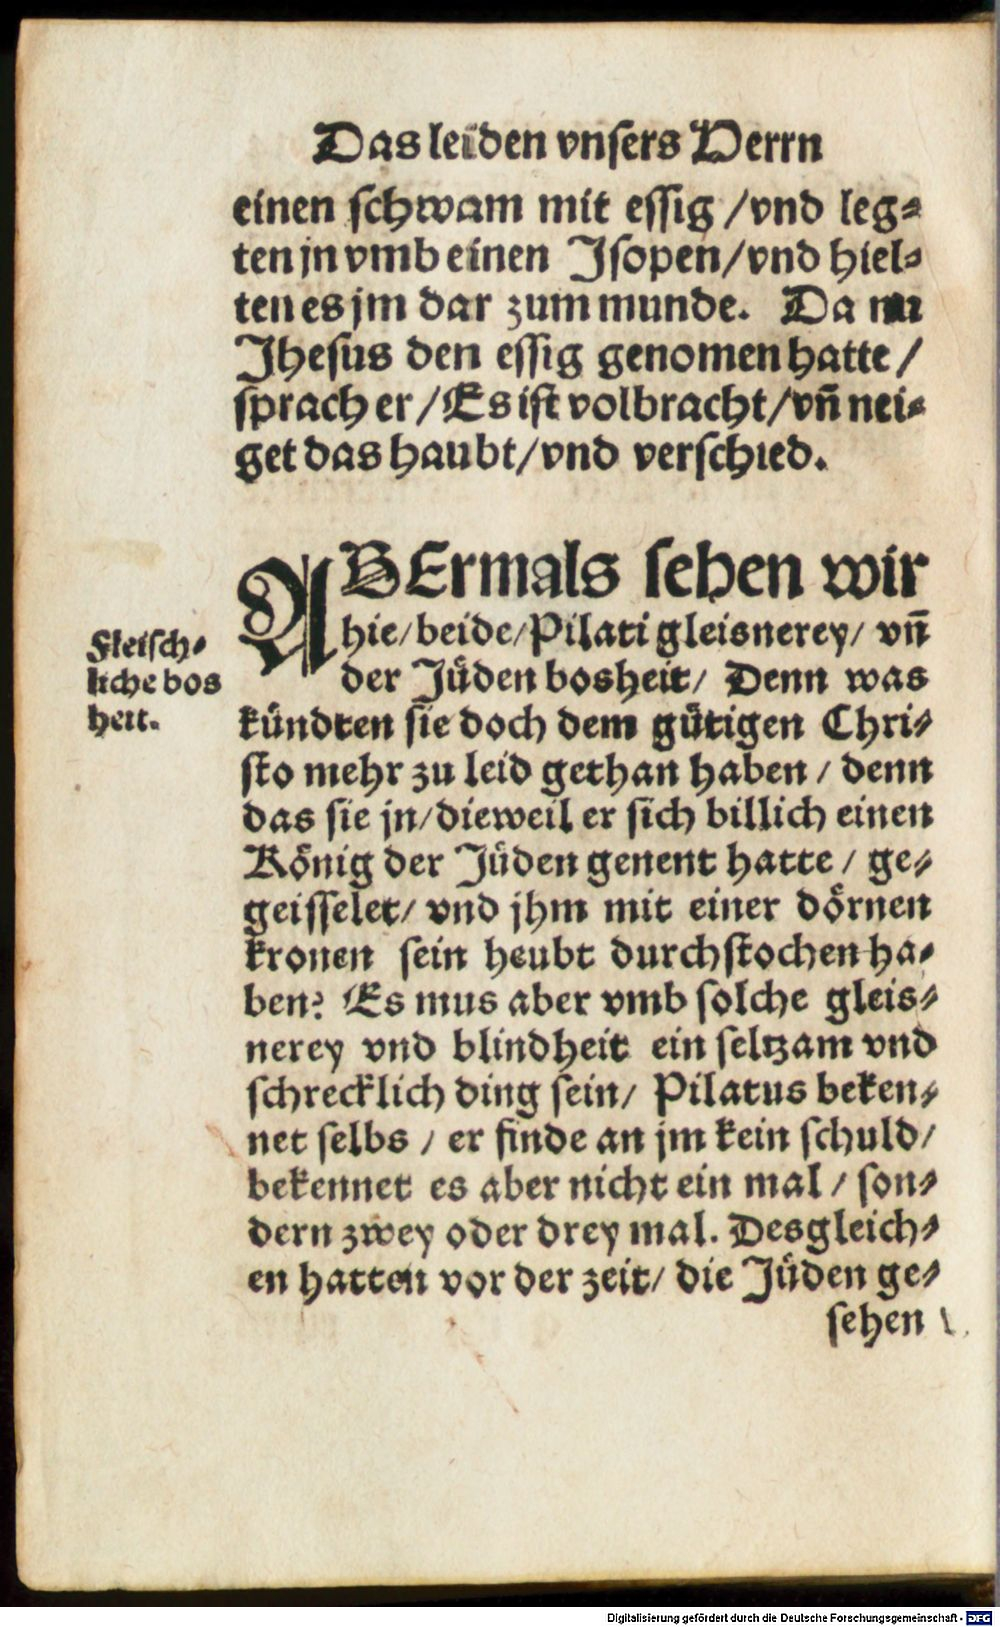 Das leiden vnsers Herrn
einen schwam mit essig /vnd leg⸗
ten jn vmb einen Jsopen/vnd hiel⸗
ten es jm dar zum munde. Da nu
Jhesus den essig genomen hatte /
sprach er /Es ist volbracht/vn̄ nei⸗
get das haubt/vnd verschied.
ABErmals sehen wir
Fleisch⸗
liche bos
heit.
hie/beide/Pilati gleisnerey/ vn̄
der Jüden bosheit/ Denn was
kündten sie doch dem gütigen Chri⸗
sto mehr zu leid gethan haben / denn
das sie jn/dieweil er sich billich einen
König der Jüden genent hatte / ge⸗
geisselet/ vnd jhm mit einer dörnen
kronen sein heubt durchstochen ha⸗
ben? Es mus aber vmb solche gleis⸗
nerey vnd blindheit ein seltzam vnd
schrecklich ding sein/ Pilatus beken⸗
net selbs / er finde an jm kein schuld/
bekennet es aber nicht ein mal / son⸗
dern zwey oder drey mal. Desgleich⸗
en hatten vor der zeit/ die Jüden ge⸗
sehen
Digitalisierung gefördert durch die Deutsche Forschungsgemeinschaft - DFG